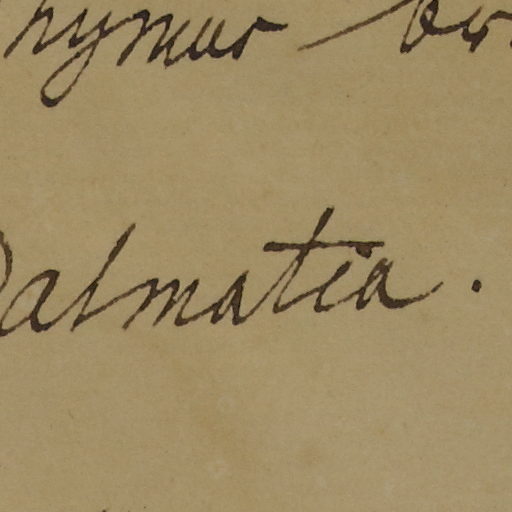 Thymus br
Dalmatia.